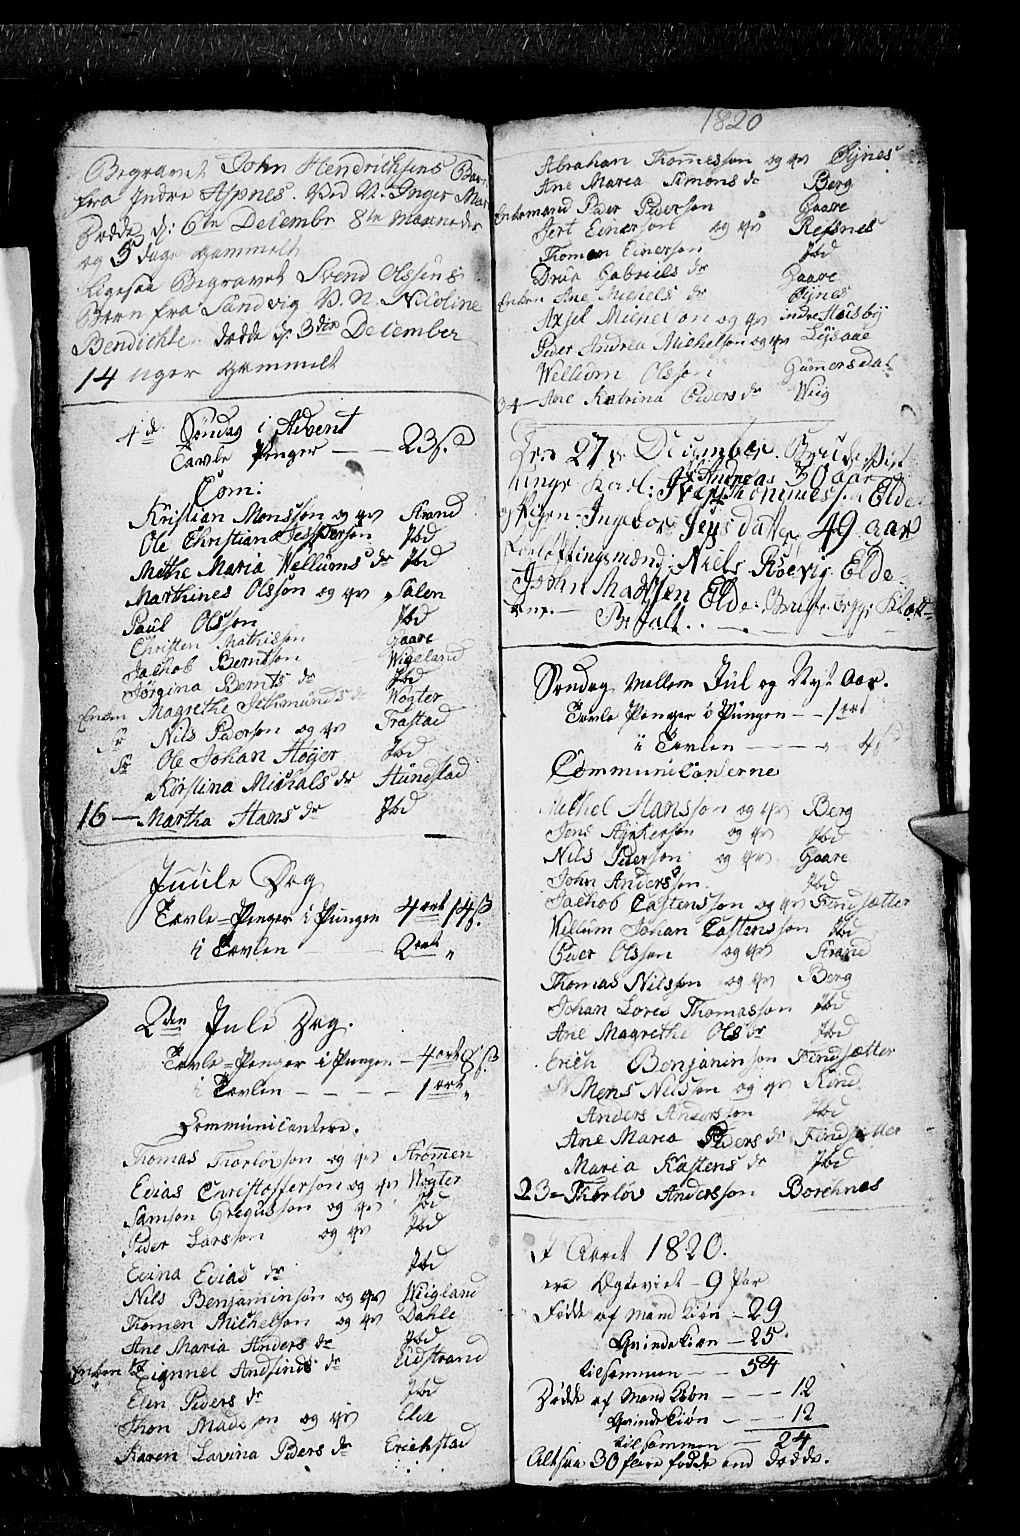 Begravet John Hendrichsens Barn
fra Indre Aspnes. Ved N. Inger Mar
Døde d: 6te Decembr 8te Maaneder
og 5 dage gammelt
ligesaa Begravet Svend Olssens
Barn fra Sandvig V. N. Nicoline
Bendickte. døde d: 3die December
14 uger gammelt
4de Søndag i Advent
Tavle Penger — — 23 s.
Com:
Kristian Monsson og qv Strand
Ole Christian Jespersøn Ibd
Methe Maria Vellums dr Ibd
Marthines Olsson og qv Salen
Paul Olsson Ibd
Christen Mathisson Gaare
Jachob Berntson Wigeland
Jørgina Bernts dr Ibd
Enken Magrethe Sethmunds dr Wogter
Nils Pederson og qv Frastad
Ole Johan Høyer Ibd
Kirstina Michals dr Hundstad
16 — Martha Hans dr Ibd
Juule Dag
Tavle-Penger i Pungen 4 ort 14 s.
i Tavlen — 2 ort „
2den Jule Dag.
Tavle-Penger i Pungen — 4 ort 8 s
i Tavlen — — — — 1 ort „
Communicantere.
Thomas Thorløvson og qv Strømen
Evias Christoffersøn og qv Wogter
Samson Gregusson og qv Ibd
Peder Larsson og qv Ibd
Evina Evias dr Ibd
Nils Benjaminsøn og qv Wiigland
Thomen Michelson og qv Dahle
Ane Maria Anders dr Ibd
Enken Andsinds dr Eidstrand
Elen Peders dr Ibd
Thon Madsson og qv Elde
Karen Lavina Peders dr Erichstad
1820
Abrahan Thommesson og qv Øynes
Ane Marea Simons dr Berg
Enkemand Peder Pederson Gaare
Jert Einerson og qv Refsnes
Thomen Einerson Ibd
Drua Gabriels dr Gaare
Enken Ane Michels dr Øynes
Axsel Michelson og qv indre Housby
Peder Andrea Michelson og qv Løjsaae
Wellum Olsson Gummersdal
24 — Ane Katrina Peders dr Wiig
Den 27de December. Brude Viet
Unge Karl: Iver Andreas Thommessen Elde 30 aar
og Pigen Ingebor Jens datter 49 aar
Forløftingsmænd: Niels Roevig Elde
John Madsen Elde.
Betalt . . —
Søndag Mellem Jul og Nyt Aar.
Tavle Penger i Pungen — 1 ort
i Tavlen — — — — 4 s
Communicanterne
Michel Hansson og qv Berg
Jens Ayskerson og qv Ibd
Nils Pederson og qv Gaare
John Andersson Ibd
Jachob Castensson og qv Findsætter
Vellum Johan Castensson Ibd
Peder Olsson og qv Strand
Thomas Nilsson og qv Berg
Johan Lorea Thomasson Ibd
Ane Magrethe Ols dr Ibd
Erich Benjaminson Findsætter
Mens Nilsson og qv Rind
Anders Andersson Ibd
Ane Marea Peders dr Findsætter
Maria Kastens dr Ibd
23 — Thorløv Andersson Borchnes
I Aaret 1820.
ere Ægteviet — 9 Par
Fødde af Mand Kiøn — 29
Qvindekiøn — 25
tilsammen — — 54
Døde af Mand Kiøn — — — 12
Qvindekiøn — — — 12
tilsammen — 24
Altsaa 30 flere fødde end døde.